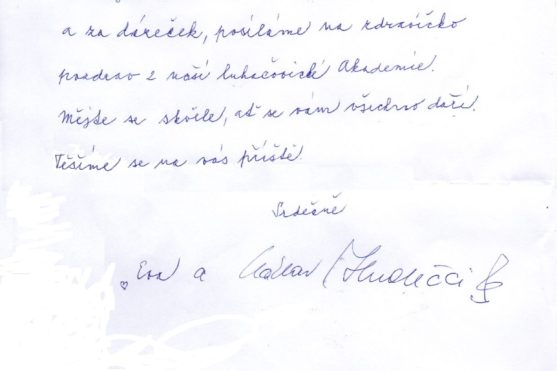 a za dáreček, posíláme na zdravíčko
pozdrav z naší luhačovické Akademie.
Mějte se skvěle, ať se vám všechno daří.
Těšíme se na vás příště.
Srdečně
Eva a Václav Hudečci